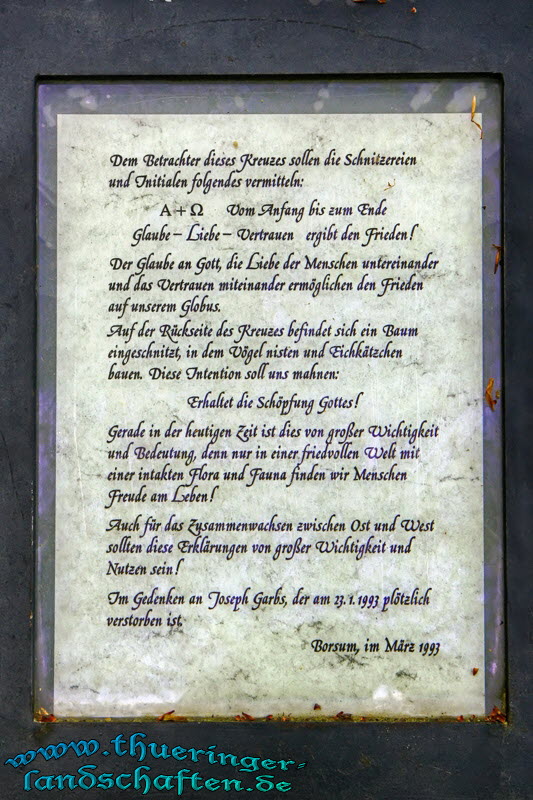 Dem Betrachter dieses Kreuzes sollen die Schnitzereien
und Initialen folgendes vermitteln:
A + Ω Vom Anfang bis zum Ende
Glaube – Liebe – Vertrauen ergibt den Frieden!
Der Glaube an Gott, die Liebe der Menschen untereinander
und das Vertrauen miteinander ermöglichen den Frieden
auf unserem Globus.
Auf der Rückseite des Kreuzes befindet sich ein Baum
eingeschnitzt, in dem Vögel nisten und Eichkätzchen
bauen. Diese Intention soll uns mahnen:
Erhaltet die Schöpfung Gottes!
Gerade in der heutigen Zeit ist dies von großer Wichtigkeit
und Bedeutung, denn nur in einer friedvollen Welt mit
einer intakten Flora und Fauna finden wir Menschen
Freude am Leben!
Auch für das Zusammenwachsen zwischen Ost und West
sollten diese Erklärungen von großer Wichtigkeit und
Nutzen sein!
Im Gedenken an Joseph Garbs, der am 23.1.1993 plötzlich
verstorben ist.
Borsum, im März 1993
www.thueringer-
landschaften.de